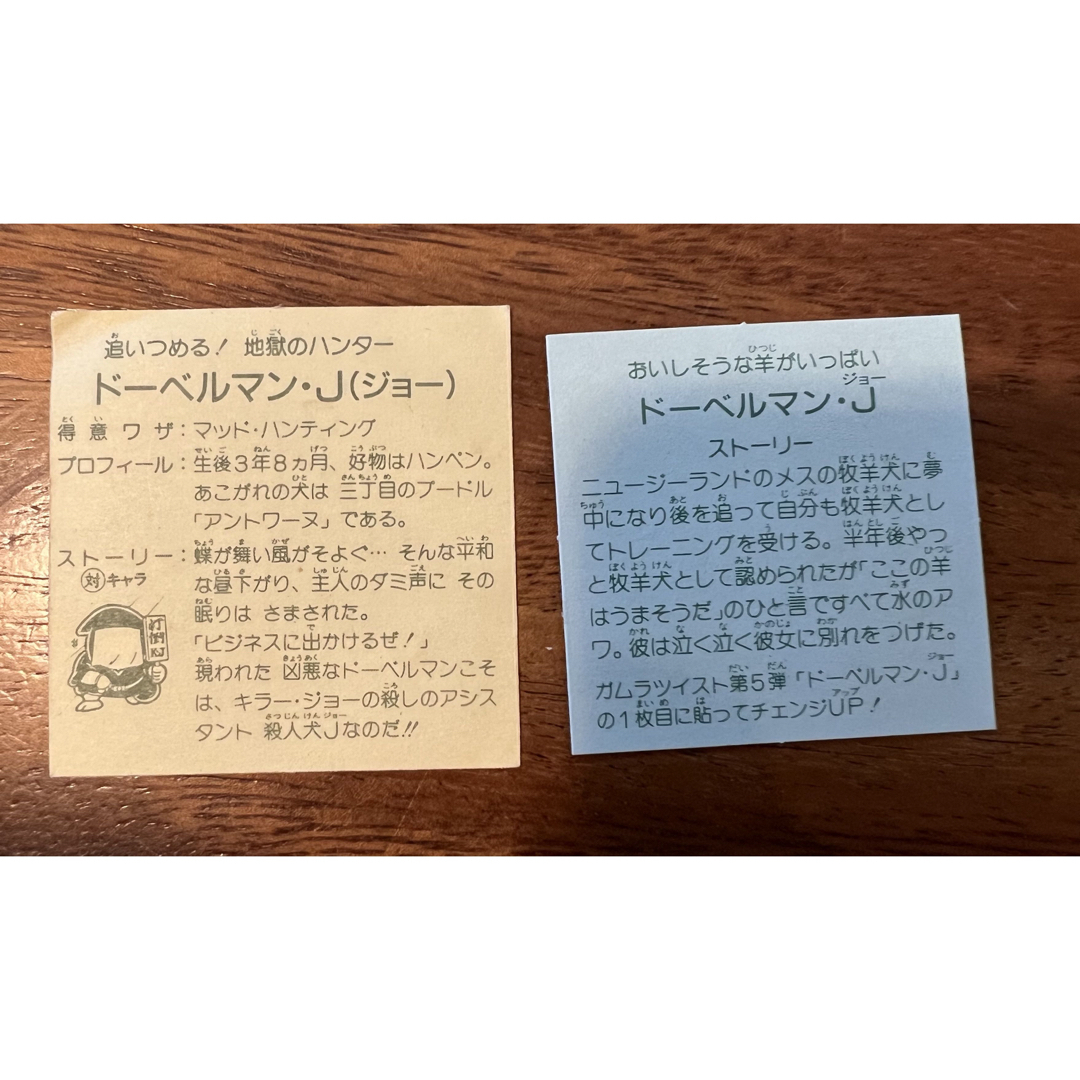 追いつめる! 地獄のハンター
ドーベルマン・J(ジョー)
得意ワザ:マッド・ハンティング
プロフィール:生後3年8ヵ月、好物はハンペン。
あこがれの犬は 三丁目のプードル
「アントワーヌ」である。
ストーリー:蝶が舞い風がそよぐ… そんな平和
対キャラ
な昼下がり、主人のダミ声に その
眠りは さまされた。
「ビジネスに出かけるぜ!」
現われた 凶悪なドーベルマンこそ
は、キラー・ジョーの殺しのアシス
タント 殺人犬Jなのだ!!
おいしそうな羊がいっぱい
ドーベルマン・J
ストーリー
ニュージーランドのメスの牧羊犬に夢
中になり後を追って自分も牧羊犬とし
てトレーニングを受ける。半年後やっ
と牧羊犬として認められたが「ここの羊
はうまそうだ」のひと言ですべて水のア
ワ。彼は泣く泣く彼女に別れをつげた。
ガムラツイスト第5弾「ドーベルマン・J」
の1枚目に貼ってチェンジUP!